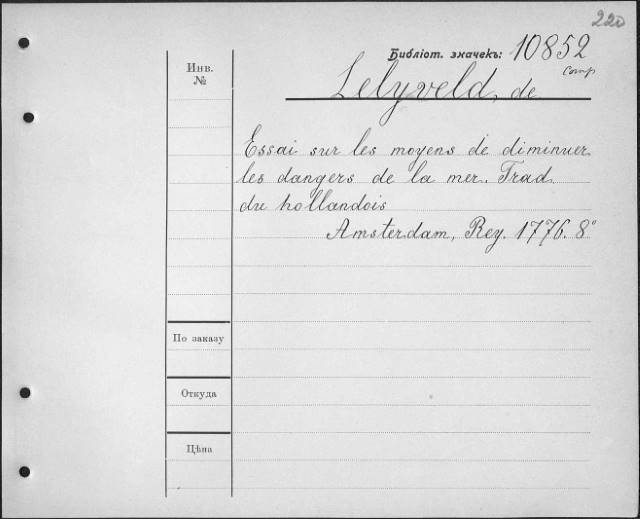 220
Библіот. значекъ: 10852
comp
Инв.
№
Lelyveld, de
Essai sur les moyens de diminuer
les dangers de la mer. Trad.
du hollandois
Amsterdam, Rey. 1776. 8°
По заказу
Откуда
Цѣна